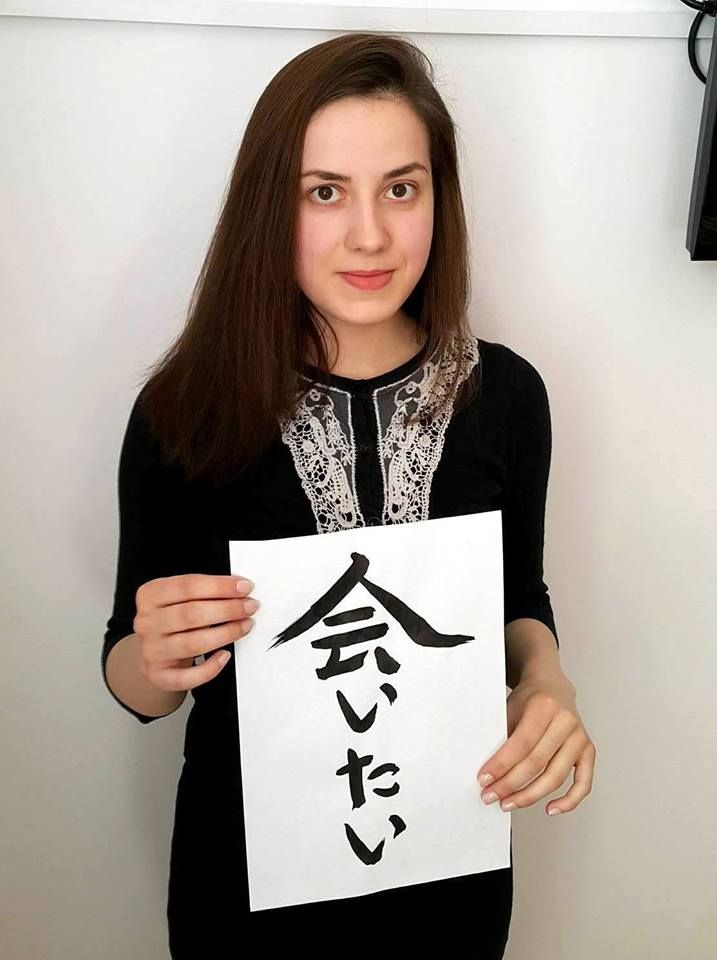 会いたい